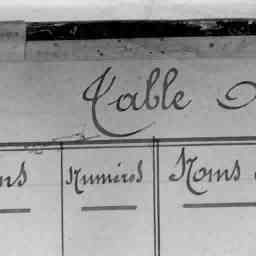 Table
Numéros Noms